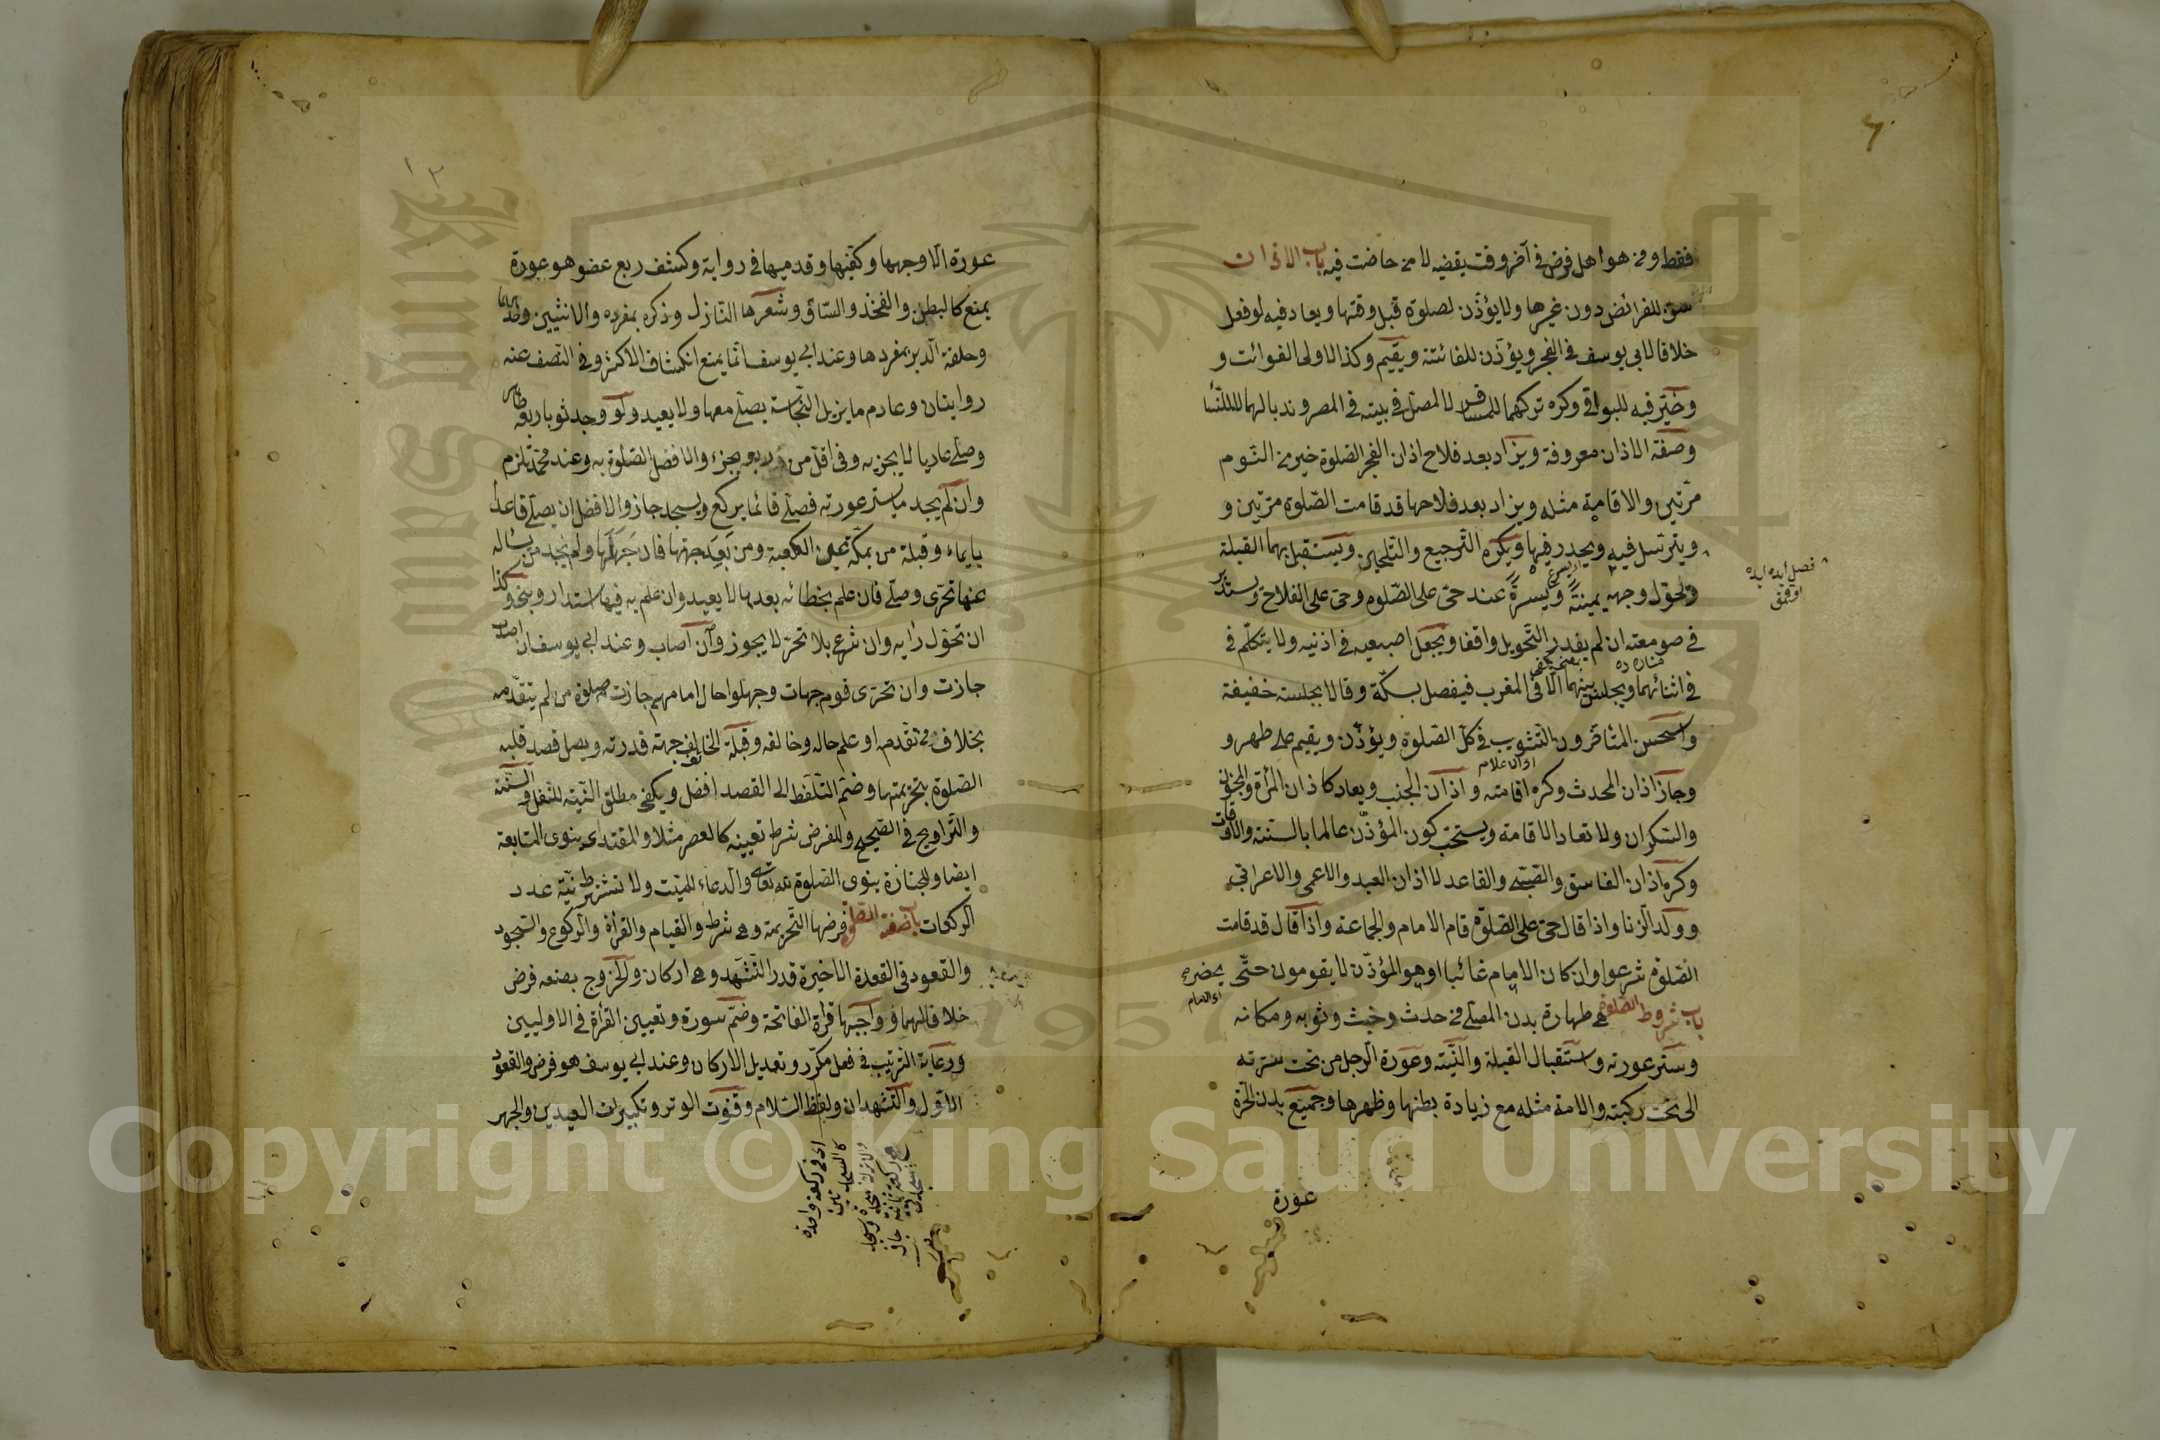 فقط ومن هو اهل فرض في آخر وقت يقضيه لا من حاضت فيه باب الاذان
سن للفرائض دون غيرها ولا يؤذن لصلوة قبل وقتها ويعاد فيه لو فعل
خلافا لابي يوسف في الفجر ويؤذن للفائتة ويقيم وكذا لاولى الفوائت و
وخير فيه للبواقي وكره تركهما للمسافر لا لمصل في بيته في المصر وندبا لهما لا للنسا
وصفة الاذان معروفة ويزاد بعد فلاح اذان الفجر الصلوة خير من النوم
مرتين والاقامة مثله ويزاد بعد فلاحها قد قامت الصلوة مرتين و
ويترسل فيه ويحدر فيها ويكره الترجيع والتلحين ويستقبل بهما القبلة
ويحول وجهه يمنة ويسرة عند حي على الصلوة وحي على الفلاح ويستدير
في صومعته ان لم يقدر التحويل واقفا ويجعل اصبعيه في اذنيه ولا يتكلم في
في اثنائهما ويجلس بينهما الا في المغرب فيفصل بسكتة وقالا بجلسة خفيفة
واستحسن المتأخرون التثويب في كل الصلوة ويؤذن ويقيم على طهر و
وجاز اذان المحدث وكره اقامته واذان الجنب ويعاد كاذان المرأة والمجنون
والسكران ولا تعاد الاقامة ويستحب كون المؤذن عالما بالسنة والاوقات
وكره اذان الفاسق والصبي والقاعد لا اذان العبد والاعمى والاعرابي
وولد الزنا واذا قال حي على الصلوة قام الامام والجماعة واذا قال قد قامت
الصلوة شرعوا وان كان الامام غائبا او هو المؤذن لا يقومون حتى يحضر
اي الامام
باب شروط الصلوة هي طهارة بدن المصلي من حدث وخبث وثوبه ومكانه
وستر عورته واستقبال القبلة والنية وعورة الرجل من تحت سرته
الى تحت ركبته والامة مثله مع زيادة بطنها وظهرها وجميع بدن الحرة
عورة
١٢
عورة الا وجهها وكفيها وقدميها في رواية وكشف ربع عضو هو عورة
يمنع كالبطن والفخذ والساق وشعرها النازل وذكره بمفرده والانثيين وحدهما
وحلقة الدبر بمفردها وعند ابي يوسف انما يمنع انكشاف الاكثر وفي النصف عنه
روايتان وعادم ما يزيل النجاسة يصلي معها ولا يعيد ولو وجد ثوبا ربعه طاهر
وصلى عاريا لا يجزيه وفي اقل من ربعه يجزء والافضل الصلوة به وعند محمد تلزم
وان لم يجد ما يستر عورته فصلى قائما يركع ويسجد جاز والافضل ان يصلي قاعدا
بايماء وقبلة من بمكة عين الكعبة ومن بعد جهتها فان جهلها ولم يجد من يسأله
عنها تحرى وصلى فان علم بخطائه بعدها لا يعيد وان علم به فيها استدار وبنى وكذا
ان تحول رأيه وان شرع بلا تحر لا يجوز وان اصاب وعند ابي يوسف ان اصاب
جازت وان تحرى قوم جهات وجهلوا حال امامهم جازت صلوة من لم يتقدمه
بخلاف من تقدمه او علم حاله وخالفه وقبلة الخائف جهة قدرته ويصل قصد قلبه
الصلوة بتحريمتها وضم التلفظ الى القصد افضل ويكفي مطلق النية للنفل والسنة
والتراويح في الصحيح وللفرض شرط تعيينه كالعصر مثلا والمقتدي ينوى المتابعة
ايضا وللجنازة ينوى الصلوة لله تعالى والدعاء للميت ولا تشترط نية عدد
الركعات باب صفة الصلوة فرضها التحريمة وهي شرط والقيام والقرأة والركوع والسجود
والقعود في القعدة الاخيرة قدر التشهد وهي اركان والخروج بصنعه فرض
خلافا لهما وواجبها قرأة الفاتحة وضم سورة وتعيين القرأة في الاوليين
ورعاية الترتيب في فعل مكرر وتعديل الاركان وعند ابي يوسف هو فرض والقعود
الاول والتشهدان ولفظ السلام وقنوت الوتر وتكبيرات العيدين والجهر
اي في ركعة واحدة
كالسجدتين
Copyright © King Saud University
King Saud University
1957